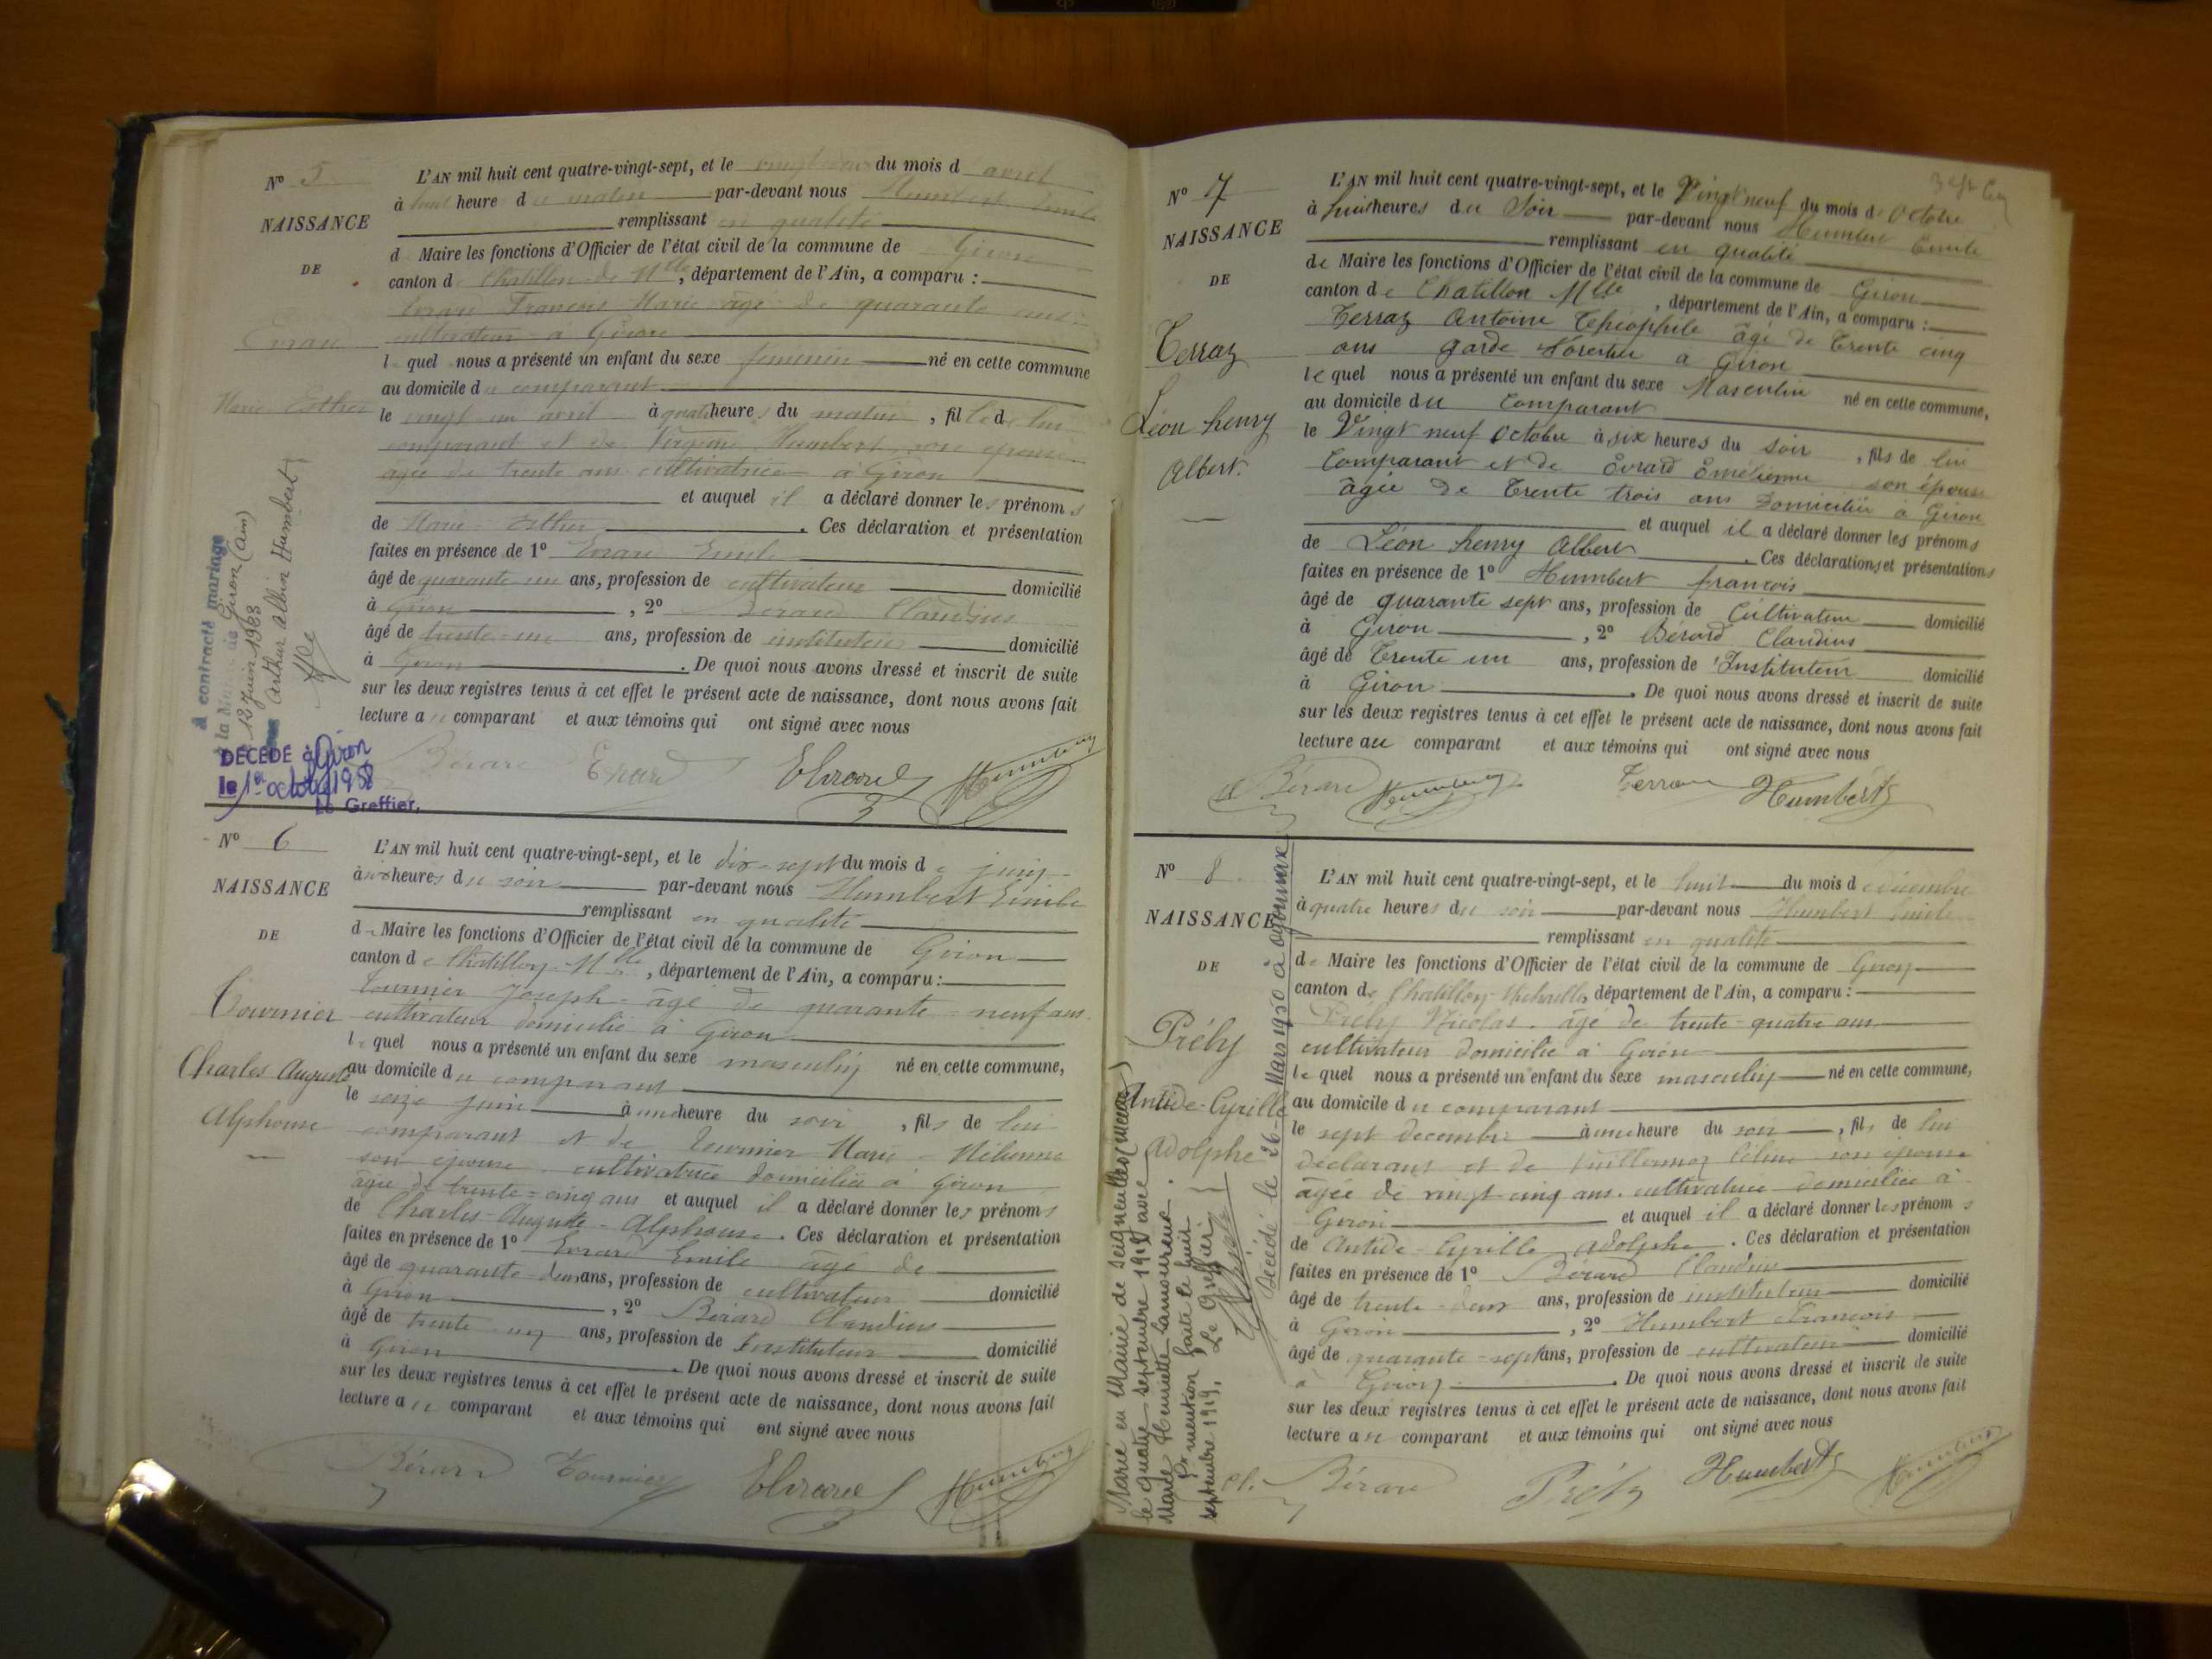 Nº 5
NAISSANCE
DE
Evrard
Marie Esther
L'AN mil huit cent quatre-vingt-sept, et le vingt-deux du mois d avril
à huit heure du matin par-devant nous Humbert Emile
remplissant en qualité
d Maire les fonctions d'Officier de l'état civil de la commune de Giron
canton de Chatillon-de-Mlle, département de l'Ain, a comparu :
Evrard François Marie âgé de quarante ans
cultivateur à Giron
lequel nous a présenté un enfant du sexe féminin né en cette commune
au domicile du comparant
le vingt-un avril à quatre heures du matin, fille de lui
comparant et de Virginie Humbert son épouse
âgée de trente ans cultivatrice à Giron
et auquel il a déclaré donner les prénoms
de Marie-Esther. Ces déclaration et présentation
faites en présence de 1º Evrard Emile
âgé de quarante-un ans, profession de cultivateur domicilié
à Giron, 2º Bérard Claudius
âgé de trente-un ans, profession de instituteur domicilié
à Giron. De quoi nous avons dressé et inscrit de suite
sur les deux registres tenus à cet effet le présent acte de naissance, dont nous avons fait
lecture au comparant et aux témoins qui ont signé avec nous
Bérard Evrard EEvrard Humbert
A contracté mariage
à la Mairie de Giron (Ain)
Arthur Albin Humbert
DÉCÉDÉ à Giron
le 1er octobre 1958
Le Greffier,
Nº 6
NAISSANCE
DE
Tournier
Charles Auguste
Alphonse
L'AN mil huit cent quatre-vingt-sept, et le dix-sept du mois de juin
à six heures du soir par-devant nous Humbert Emile
remplissant en qualité
de Maire les fonctions d'Officier de l'état civil de la commune de Giron
canton de Chatillon-Mlle, département de l'Ain, a comparu :
Tournier Joseph âgé de quarante-neuf ans
cultivateur domicilié à Giron
lequel nous a présenté un enfant du sexe masculin né en cette commune,
au domicile du comparant
le seize juin à une heure du soir, fils de lui
comparant et de Tournier Marie-Mélienne
son épouse cultivatrice domiciliée à Giron
âgée de trente-cinq ans et auquel il a déclaré donner les prénoms
de Charles-Auguste-Alphonse. Ces déclaration et présentation
faites en présence de 1º Evrard Emile âgé de
âgé de quarante-deux ans, profession de cultivateur domicilié
à Giron, 2º Bérard Claudius
âgé de trente-un ans, profession de Instituteur domicilié
à Giron. De quoi nous avons dressé et inscrit de suite
sur les deux registres tenus à cet effet le présent acte de naissance, dont nous avons fait
lecture au comparant et aux témoins qui ont signé avec nous
Bérard Tournier EEvrard Humbert
Nº 7
NAISSANCE
DE
Terraz
Léon henry
Albert.
L'AN mil huit cent quatre-vingt-sept, et le Vingt neuf du mois d'Octobre
à huit heures du Soir par-devant nous Humbert Emile
remplissant en qualité
de Maire les fonctions d'Officier de l'état civil de la commune de Giron
canton de Chatillon Mlle, département de l'Ain, a comparu :
Terraz Antoine Théophile âgé de Trente cinq
ans garde forestier à Giron
lequel nous a présenté un enfant du sexe Masculin né en cette commune,
au domicile du Comparant
le Vingt neuf Octobre à six heures du soir, fils de lui
Comparant et de Evrard Emélienne son épouse
âgée de Trente trois ans Domiciliée à Giron
et auquel il a déclaré donner les prénoms
de Léon henry Albert. Ces déclarations et présentations
faites en présence de 1º Humbert françois
âgé de quarante sept ans, profession de Cultivateur domicilié
à Giron, 2º Bérard Claudius
âgé de Trente un ans, profession de Instituteur domicilié
à Giron. De quoi nous avons dressé et inscrit de suite
sur les deux registres tenus à cet effet le présent acte de naissance, dont nous avons fait
lecture au comparant et aux témoins qui ont signé avec nous
Cl Bérard Humbert Terraz Humbert
Nº 8
NAISSANCE
DE
Prély
Antide-Cyrille
Adolphe
L'AN mil huit cent quatre-vingt-sept, et le huit du mois de décembre
à quatre heures du soir par-devant nous Humbert Emile
remplissant en qualité
de Maire les fonctions d'Officier de l'état civil de la commune de Giron
canton de Chatillon-Michaille, département de l'Ain, a comparu :
Prély Nicolas âgé de trente-quatre ans
cultivateur domicilié à Giron
lequel nous a présenté un enfant du sexe masculin né en cette commune,
au domicile du comparant
le sept décembre à une heure du soir, fils de lui
déclarant et de Guillermoz Céline son épouse
âgée de vingt-cinq ans cultivatrice domiciliée à
Giron et auquel il a déclaré donner les prénoms
de Antide-Cyrille Adolphe. Ces déclaration et présentation
faites en présence de 1º Bérard Claudius
âgé de trente-deux ans, profession de instituteur domicilié
à Giron, 2º Humbert François
âgé de quarante-sept ans, profession de cultivateur domicilié
à Giron. De quoi nous avons dressé et inscrit de suite
sur les deux registres tenus à cet effet le présent acte de naissance, dont nous avons fait
lecture au comparant et aux témoins qui ont signé avec nous
Cl. Bérard Prély Humbert Humbert
Marié en Mairie de Seigneulles (Meuse)
le quatre septembre 1919 avec
Marie Henriette Lamoureux.
Pr mention faite le huit
septembre 1919. Le Greffier
Décédé le 26 Mars 1950 à Oyonnax